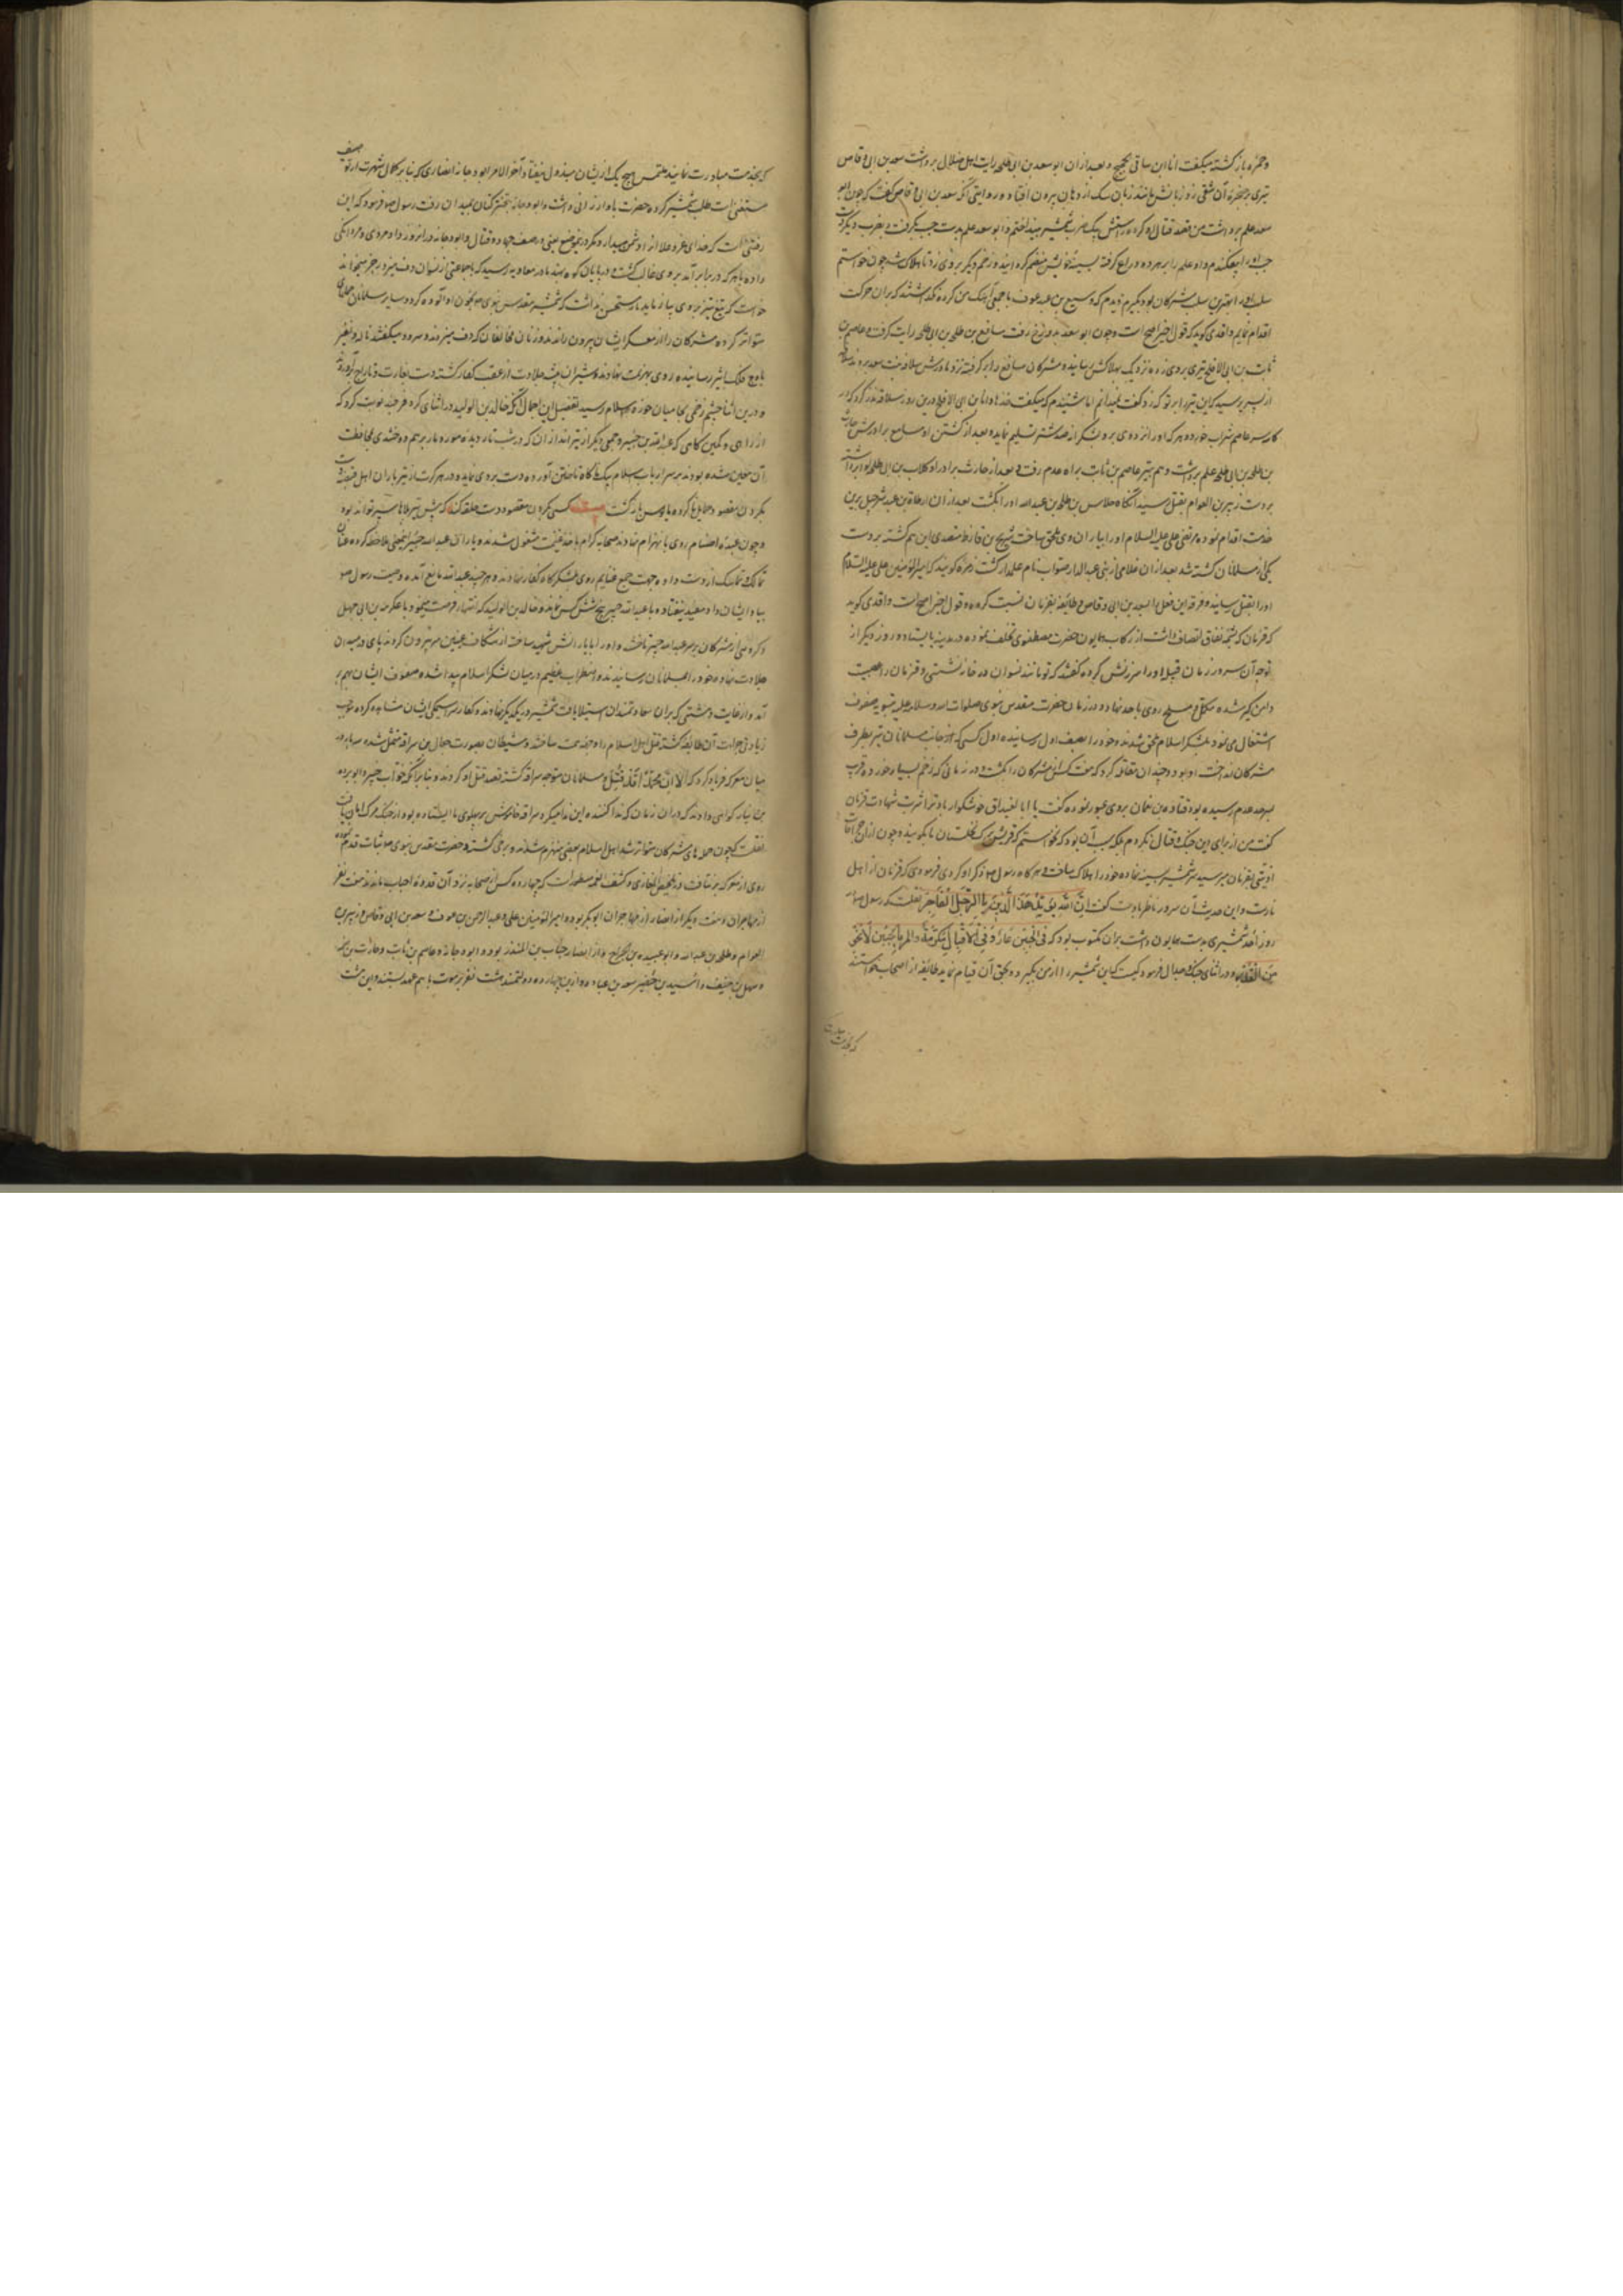 و حمزه بازگشته میگفت انا ابن ساقی الحجیج و بعد از ان ابو سعد بن ابی طلحه رایت اهل ضلال برداشت سعد بن ابی وقاص
تیری بر حنجره آن شقی زد زبانش مانند زبان سگ از دهان بیرون افتاد و روایتی آنکه سعد بن ابی وقاص گفت که چون ابو
سعد علم برداشت من قصد قتال او کرده دست راستش بیک ضرب شمشیر بینداختم و ابو سعد علم بدست چپ بگرفت و بضرب دیگر دست
چپ او را بیفکندم و او علم را بر هر دو ذراع گرفته بسینه خویش منضم گردانید و زخم دیگر بر وی زدم تا هلاک شد چون خواستم
سلب او را که بهترین سلب مشرکان بود بگیرم دیدم که سبیع بن عبد عوف با جمعی آهنگ من کرده نگذاشتند که بران حرکت
اقدام نمایم واقدی گوید که قول اخیر اصح است و چون ابو سعد بدوزخ رفت مسافع بن طلحه بن ابی طلحه رایت گرفت و عاصم بن
ثابت بن ابی الافلح تیری بر وی زده نزدیک بهلاکش رسانیده مشرکان مسافع را برگرفته نزد مادرش سلافه بنت سعد بردند سلافه
از پسر پرسید که این تیر را بر تو که زد گفت نمیدانم اما شنیدم که میگفت خذها و انا بن ابی الافلح و درین روز سلافه نذر کرد که در
کاسه سر عاصم شراب خورد و هر که او را نزد وی برد بشکرانه صد شتر تسلیم نماید و بعد از کشتن او مسافع برادرش حارث
بن طلحه بن ابی طلحه علم برداشت و هم بتیر عاصم بن ثابت براه عدم رفت و بعد از حارث برادر او کلاب بن ابی طلحه لوا برداشته
بر دست زبیر بن العوام بقتل رسید آنگاه جلاس بن طلحه بن عبید الله او را بکشت بعد از ان ارطاة بن عبد شرحبیل برین
خدمت اقدام نموده مرتضی علی علیه السلام او را بیاران وی ملحق ساخت شریح بن قارظ متصدی این هم گشته بر دست
یکی از مسلمانان کشته شد بعد از ان غلامی از بنی عبد الدار صواب نام علمدار گشت زمره گویند که امیر المؤمنین علی علیه السلام
او را بقتل رسانید و فرقه این فعل را بسعد بن ابی وقاص و طایفه بقزمان نسبت کرده و قول اخیر اصح است واقدی گوید
که قزمان که بشمه نفاق اتصاف داشت از رکاب همایون حضرت مصطفوی تخلف نموده در مدینه بایستاد و روز دیگر از
توجه آن سرور زنان قبیله او را سرزنش کرده گفتند که تو مانند نسوان در خانه نشستی و قزمان را عصبیت
دامن گیر شده مکمل و مسلح روی باحد نهاد و در زمان حضرت مقدس نبوی صلوات الله و سلامه علیه بتسویه صفوف
اشتغال می نمود بلشکر اسلام ملحق شده و خود را بصف اول رسانیده اول کسی که از جانب مسلمانان تیر بطرف
مشرکان انداخت او بود و چندان مقاتله کرد که هفت کس از مشرکان را بکشت و در زمانی که زخم بسیار خورده قریب
بسرحد عدم رسیده بود قتاده بن نعمان بر وی عبور نموده گفت یا ابا الغیداق خوشگوار باد ترا شربت شهادت قزمان
گفت من از برای دین جنگ و قتال نکردم بلکه سبب آن بود که نخواستم که قریش بر نخلستان ما بگویند و چون از ان جراحات
اذیتی بقزمان میرسید سر شمشیر بسینه نهاده خود را هلاک ساخت و هرگاه رسول صه ذکر او کردی فرمودی که قزمان از اهل
نارست و این حدیث آن سرور ناظر بدوست گفت اِنَّ اللّٰهَ یُؤَیِّدُ هٰذَا الدِّینَ بِالرَّجُلِ الْفَاجِرِ نقلست که رسول صه
روز اُحُد شمشیری بدست همایون داشت بران مکتوب بود که فِی الْجُبْنِ عَارٌ وَ فِی الْاِقْبَالِ مَکْرُمَةٌ و المرءُ بِالْجُبْنِ لَا یَنْجُو
مِنَ الْقَدَرِ و در اثنای جنگ و جدال فرمود کیست که این شمشیر را از من بگیرد و بحق آن قیام نماید طایفه از اصحاب خواستند
که بخدمت مبادرت
که بخدمت مبادرت نمایند ملتمس هیچ یک از ایشان مبذول نیفتاد و آخر الامر ابو دجانه انصاری که بنا بر کمال شهرت از توصیف
مستغنی است طلب شمشیر کرده حضرت باو ارزانی داشت و ابو دجانه تبختر کنان بمیدان رفت رسول صه فرمود که این
رفتنی است که خدای عز و علا انرا دشمن میدارد مگر در این موضع یعنی در صف جهاد و قتال و ابو دجانه در آنروز داد مردی و مردانگی
داده با هر که در برابر آمد بر وی غالب گشت و در پایان کوه بهند مادر معاویه رسید که با جماعتی از نسوان دف میزد و رجز میخواند
خواست که تیغ تیز بر وی بیازماید باز مستحسن نداشت که شمشیر مقدس نبوی صه بخون او آلوده گردد و سایر مسلمانان حمله‌ای
متواتر کرده مشرکان را از معسکر ایشان بیرون راندند و زنان مخالفان که دف میزدند و سرود میگفتند ناله و نفیر
باوج فلک اثیر رسانیده روی بهزیمت نهادند و شیران بیشه جلادت از عقب کفار گشته دست بغارت و تاراج برآوردند
و درین اثنا چشم زخمی بحامیان حوزه اسلام رسید تفصیل این اجمال آنکه خالد بن الولید در اثنای کر و فر چند نوبت کرد که
از راهی و کمین گاهی که عبد الله بن جبیر و جمعی دیگر از تیر اندازان که در شب تار دیده مور و مار بر هم دوختندی بمحافظت
آن معین شده بودند بر سر ارباب اسلام بیک ناگاه تاختن آورده دست بردی نماید و در هر کرت از تیر باران اهل فتنه دست
بگردن مقصود حمایل ناکرده مایوس باز گشت بیت کسی بگردن مقصود دست حلقه کند که پیش تیر بلاها سپر تواند بود
و چون عبدهٔ اصنام روی بانهزام نهادند صحابه کرام باخذ غنیمت مشغول شدند و یاران عبد الله جبیر این معنی ملاحظه کرده عنان
تمالک و تماسک از دست داده جهت جمع غنایم روی بلشکرگاه کفار نهادند و هر چند عبد الله مانع آمده وصیت رسول صه
بیاد ایشان داد مفید نیفتاد و با عبد الله جبیر پنج شش کس نماند و خالد بن الولید که انتهاز فرصت میجود با عکرمه بن ابی جهل
و گروهی از مشرکان بر سر عبد الله جبیر تاخت و او را با یارانش شهید ساخته از شکاف عینین سر بیرون کردند و پای در میدان
جلادت نهاده خود را بمسلمانان رسانیدند و اضطراب عظیم در میان لشکر اسلام پیدا شده صفوف ایشان بهم بر
آمد و از غایت دهشتی که بران سعادتمندان استیلا یافت شمشیر در یکدیگر نهادند و کفار سراسیمگی ایشان مشاهده کرده موجب
زیادتی جرات آن طایفه گشته قتل اهل اسلام را وجهه همت ساختند و شیطان بصورت جعال بن سراقه متمثل شده سه بار در
میان معرکه فریاد کرد که اَلَا اِنَّ مُحَمَّدًا قَدْ قُتِلَ و مسلمانان متوجه سراقه گشته قصد قتل او کردند و بنا بر آنکه خوات جبیر و ابو برده
بن نیار گواهی دادند که در ان زمان که ندا کننده این ندا میکرد سراقه خاموش بر پهلوی ما ایستاده بود از جنگ مرگ امان یافت
نقلست که چون حمله های مشرکان متواتر شد اهل اسلام بعضی منهزم شدند و برخی کشته و حضرت مقدس نبوی صه ثبات قدم نموده
روی از معرکه بر نتافت و در تلخیص المغازی و کشف الغمه مسطورست که چهارده کس از صحابه نزد آن قدوهٔ احباب ماندند هفت نفر
از مهاجران و هفت دیگر از انصار از مهاجران ابو بکر بود و امیر المؤمنین علی و عبد الرحمن بن عوف و سعد بن ابی وقاص و زبیر بن
العوام و طلحه بن عبید الله و ابو عبیده بن الجراح و از انصار حباب بن المنذر بود و ابو دجانه و عاصم بن ثابت و حارث بن صمه
و سهل بن حنیف و اُسید بن حُضیر و سعد بن عباده و ازین چهارده دولتمند هشت نفر بر موت با هم عهد بستند و این هشت